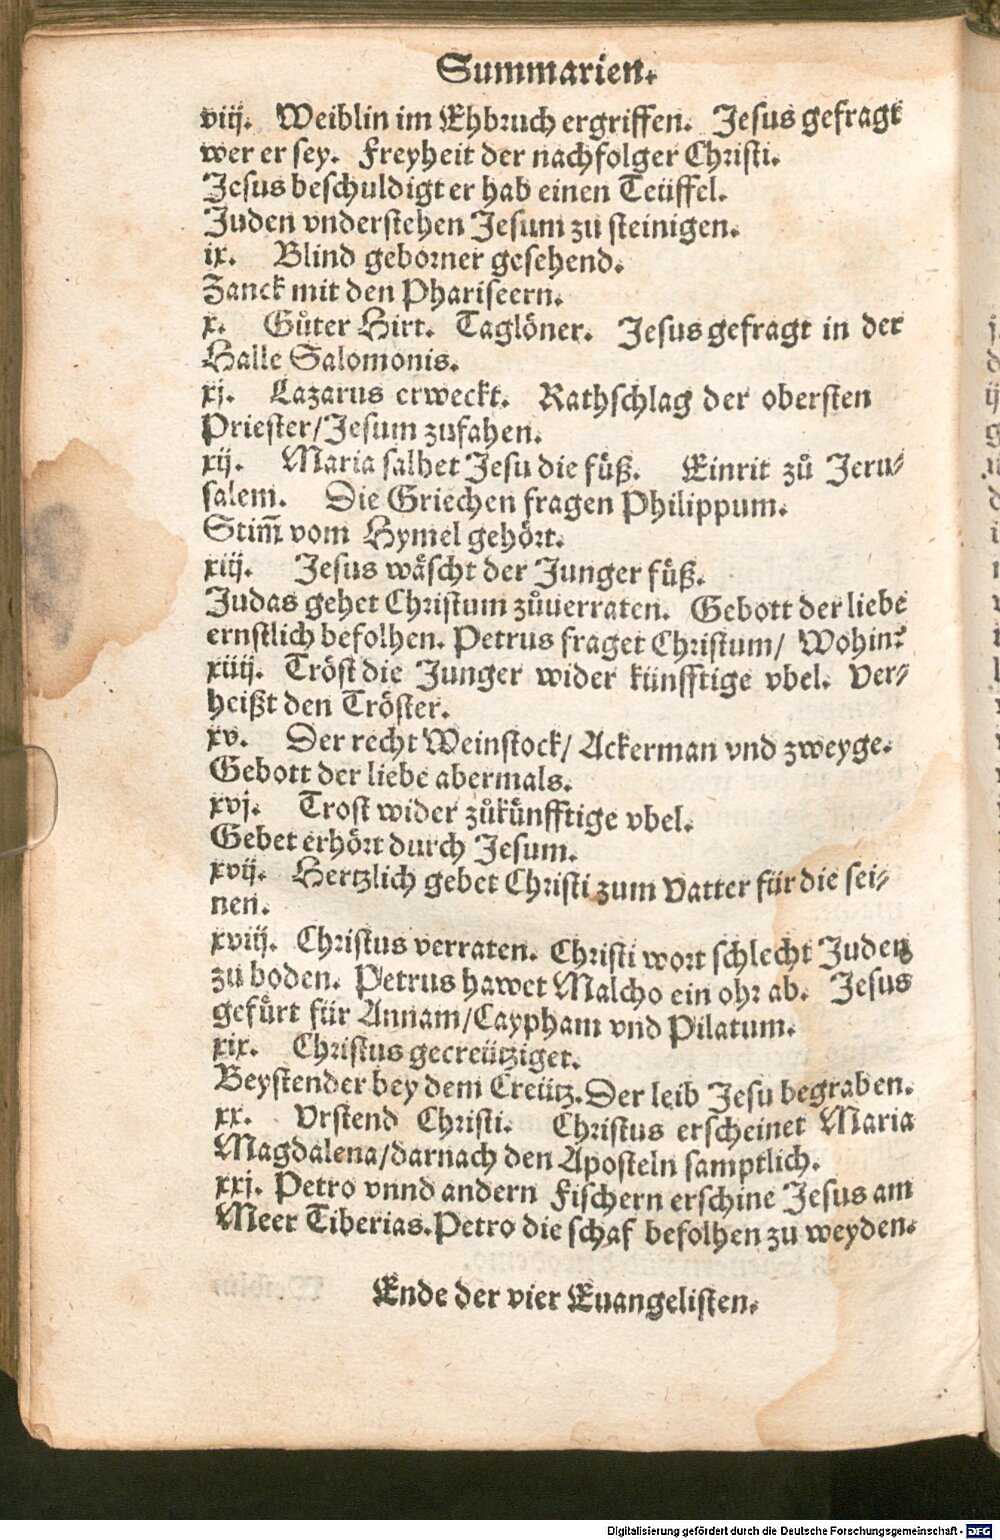 Summarien.
viij. Weiblin im Ehbruch ergriffen. Jesus gefragt
wer er sey. Freyheit der nachfolger Christi.
Jesus beschuldigt er hab einen Teüffel.
Juden vnderstehen Jesum zu steinigen.
ix. Blind geborner gesehend.
Zanck mit den Phariseern.
x. Gůter Hirt. Taglöner. Jesus gefragt in der
Halle Salomonis.
xj. Lazarus erweckt. Rathschlag der obersten
Priester/Jesum zufahen.
xij. Maria salbet Jesu die füß. Einrit zů Jeru-
salem. Die Griechen fragen Philippum.
Stim̄ vom Hymel gehört.
xiij. Jesus wäscht der Junger füß.
Judas gehet Christum zůuerraten. Gebott der liebe
ernstlich befolhen. Petrus fraget Christum/ Wohin?
xiiij. Tröst die Junger wider künfftige vbel. Ver-
heißt den Tröster.
xv. Der recht Weinstock/ Ackerman vnd zweyge.
Gebott der liebe abermals.
xvj. Trost wider zůkünfftige vbel.
Gebet erhört durch Jesum.
xvij. Hertzlich gebet Christi zum Vatter für die sei-
nen.
xviij. Christus verraten. Christi wort schlecht Juden
zu boden. Petrus hawet Malcho ein ohr ab. Jesus
gefürt für Annam/Caypham vnd Pilatum.
xix. Christus gecreütziget.
Beystender bey dem Creütz. Der leib Jesu begraben.
xx. Vrstend Christi. Christus erscheinet Maria
Magdalena/darnach den Aposteln samptlich.
xxj. Petro vnnd andern Fischern erschine Jesus am
Meer Tiberias. Petro die schaf befolhen zu weyden.
Ende der vier Euangelisten.
Digitalisierung gefördert durch die Deutsche Forschungsgemeinschaft - DFG